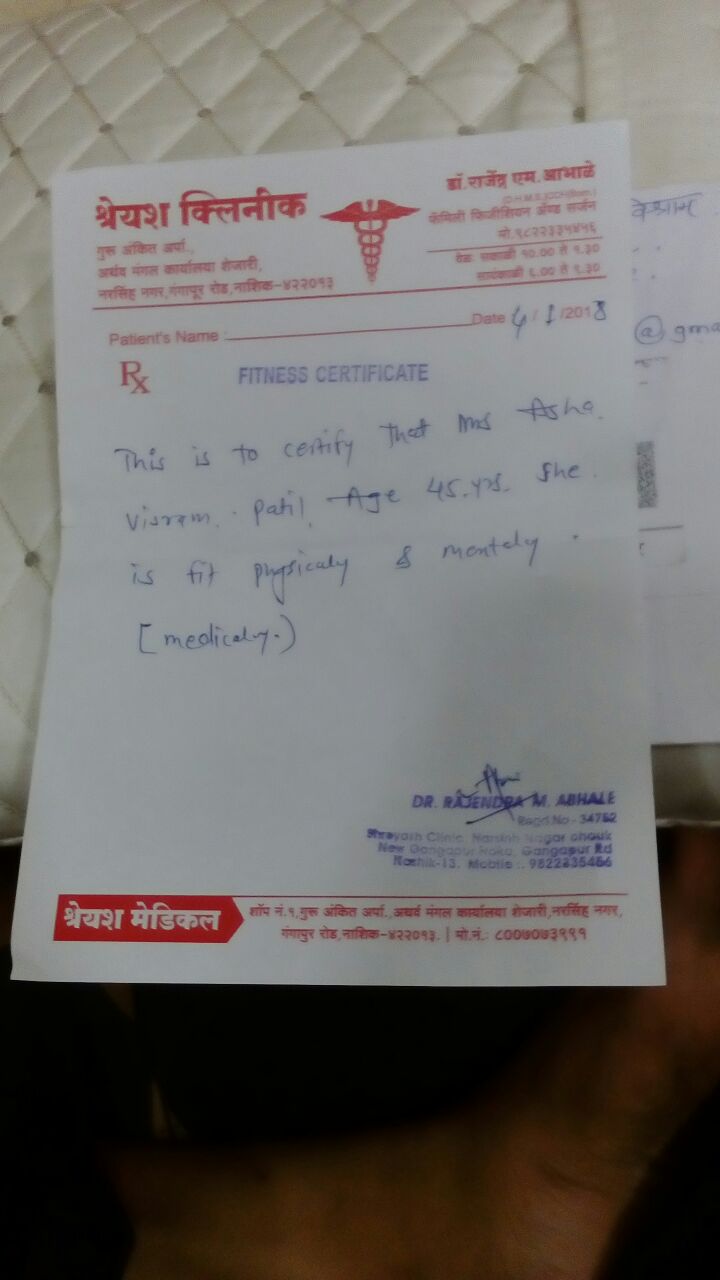 श्रेयश क्लिनीक
गुरू अंकित अर्पा.,
अथर्व मंगल कार्यालया शेजारी,
नरसिंह नगर,गंगापूर रोड,नाशिक-४२२०१३
डॉ. राजेंद्र एम. आभाळे
फॅमिली फिजीशियन अॅण्ड सर्जन
मो.९८२२३३५४५६
वेळ: सकाळी १०.०० ते १.३०
सायंकाळी ६.०० ते ९.३०
Patient's Name :
Date 4/1/2018
Rx
FITNESS CERTIFICATE
This is to certify that Mrs Asha.
Visram. Patil. Age 45.yrs. She.
is fit physicaly & mentely.
[medicaly.)
DR. RAJENDRA M. ABHALE
Regd.No - 34752
Shreyash Clinic, Narsinh Nagar chouk
New Gangapur Naka, Gangapur Rd
Nashik-13. Mobile:. 9822335456
श्रेयश मेडिकल
शॉप नं.१,गुरू अंकित अर्पा.,अथर्व मंगल कार्यालया शेजारी,नरसिंह नगर,
गंगापूर रोड,नाशिक-४२२०१३. | मो.नं.: ८००७०७३९९१
विश्राम
@gma